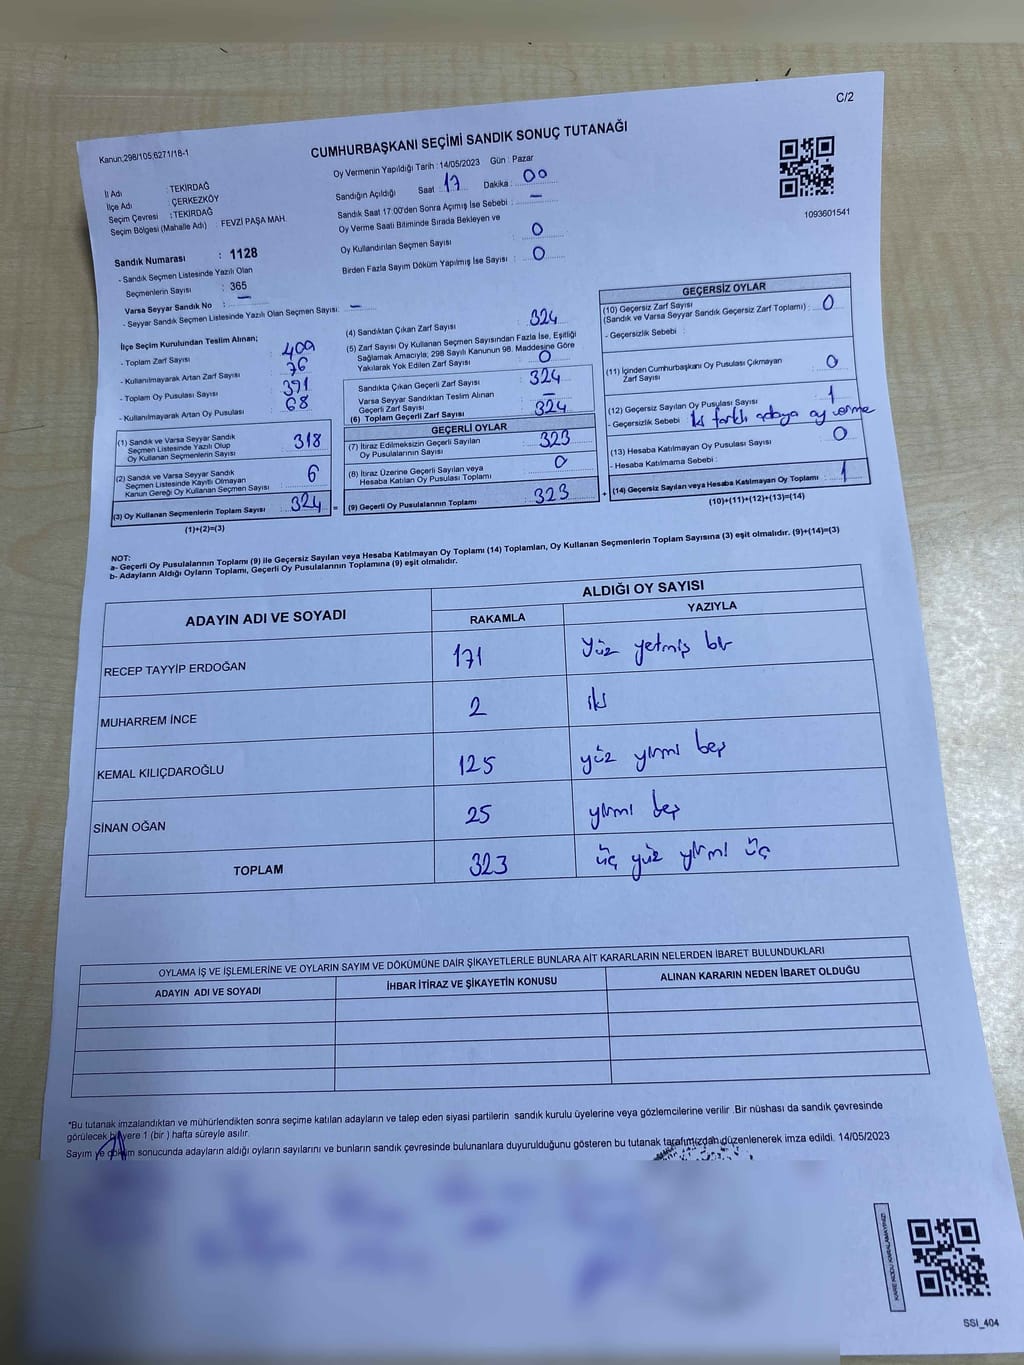 C/2
Kanun,298/105;6271/18-1
CUMHURBAŞKANI SEÇİMİ SANDIK SONUÇ TUTANAĞI
İl Adı : TEKİRDAĞ
İlçe Adı : ÇERKEZKÖY
Seçim Çevresi : TEKİRDAĞ
Seçim Bölgesi (Mahalle Adı) : FEVZİ PAŞA MAH.
Sandık Numarası : 1128
- Sandık Seçmen Listesinde Yazılı Olan
Seçmenlerin Sayısı : 365
Varsa Seyyar Sandık No : —
- Seyyar Sandık Seçmen Listesinde Yazılı Olan Seçmen Sayısı: —
Oy Vermenin Yapıldığı Tarih : 14/05/2023 Gün : Pazar
Sandığın Açıldığı Saat 17 Dakika : 00
Sandık Saat 17:00'den Sonra Açımış İse Sebebi : —
Oy Verme Saati Bitiminde Sırada Bekleyen ve
Oy Kullandırılan Seçmen Sayısı : 0
Birden Fazla Sayım Döküm Yapılmış İse Sayısı : 0
1093601541
İlçe Seçim Kurulundan Teslim Alınan;
- Toplam Zarf Sayısı : 400
- Kullanılmayarak Artan Zarf Sayısı : 76
- Toplam Oy Pusulası Sayısı : 391
- Kullanılmayarak Artan Oy Pusulası : 68
(1) Sandık ve Varsa Seyyar Sandık
Seçmen Listesinde Yazılı Olup
Oy Kullanan Seçmenlerin Sayısı : 318
(2) Sandık ve Varsa Seyyar Sandık
Seçmen Listesinde Kayıtlı Olmayan
Kanun Gereği Oy Kullanan Seçmen Sayısı : 6
(3) Oy Kullanan Seçmenlerin Toplam Sayısı : 324
(1)+(2)=(3)
(4) Sandıktan Çıkan Zarf Sayısı : 324
(5) Zarf Sayısı Oy Kullanan Seçmen Sayısından Fazla İse, Eşitliği
Sağlamak Amacıyla; 298 Sayılı Kanunun 98. Maddesine Göre
Yakılarak Yok Edilen Zarf Sayısı : 0
Sandıkta Çıkan Geçerli Zarf Sayısı : 324
Varsa Seyyar Sandıktan Teslim Alınan
Geçerli Zarf Sayısı : —
(6) Toplam Geçerli Zarf Sayısı : 324
GEÇERLİ OYLAR
(7) İtiraz Edilmeksizin Geçerli Sayılan
Oy Pusulalarının Sayısı : 323
(8) İtiraz Üzerine Geçerli Sayılan veya
Hesaba Katılan Oy Pusulası Toplamı : 0
= (9) Geçerli Oy Pusulalarının Toplamı : 323
GEÇERSİZ OYLAR
(10) Geçersiz Zarf Sayısı
(Sandık ve Varsa Seyyar Sandık Geçersiz Zarf Toplamı) : 0
- Geçersizlik Sebebi :
(11) İçinden Cumhurbaşkanı Oy Pusulası Çıkmayan
Zarf Sayısı : 0
(12) Geçersiz Sayılan Oy Pusulası Sayısı : 1
- Geçersizlik Sebebi İki farklı adaya oy verme
(13) Hesaba Katılmayan Oy Pusulası Sayısı : 0
- Hesaba Katılmama Sebebi :
+ (14) Geçersiz Sayılan veya Hesaba Katılmayan Oy Toplamı : 1
(10)+(11)+(12)+(13)=(14)
NOT:
a- Geçerli Oy Pusulalarının Toplamı (9) ile Geçersiz Sayılan veya Hesaba Katılmayan Oy Toplamı (14) Toplamları, Oy Kullanan Seçmenlerin Toplam Sayısına (3) eşit olmalıdır. (9)+(14)=(3)
b- Adayların Aldığı Oyların Toplamı, Geçerli Oy Pusulalarının Toplamına (9) eşit olmalıdır.
ADAYIN ADI VE SOYADI ALDIĞI OY SAYISI
RAKAMLA YAZIYLA
RECEP TAYYİP ERDOĞAN 171 yüz yetmiş bir
MUHARREM İNCE 2 iki
KEMAL KILIÇDAROĞLU 125 yüz yirmi beş
SİNAN OĞAN 25 yirmi beş
TOPLAM 323 üç yüz yirmi üç
OYLAMA İŞ VE İŞLEMLERİNE VE OYLARIN SAYIM VE DÖKÜMÜNE DAİR ŞİKAYETLERLE BUNLARA AİT KARARLARIN NELERDEN İBARET BULUNDUKLARI
ADAYIN ADI VE SOYADI İHBAR İTİRAZ VE ŞİKAYETİN KONUSU ALINAN KARARIN NEDEN İBARET OLDUĞU
*Bu tutanak imzalandıktan ve mühürlendikten sonra seçime katılan adayların ve talep eden siyasi partilerin sandık kurulu üyelerine veya gözlemcilerine verilir .Bir nüshası da sandık çevresinde
görülecek bir yere 1 (bir ) hafta süreyle asılır.
Sayım ve döküm sonucunda adayların aldığı oyların sayılarını ve bunların sandık çevresinde bulunanlara duyurulduğunu gösteren bu tutanak tarafımızdan düzenlenerek imza edildi. 14/05/2023
KARE KODU KARALAMAYINIZ!
SSİ_404